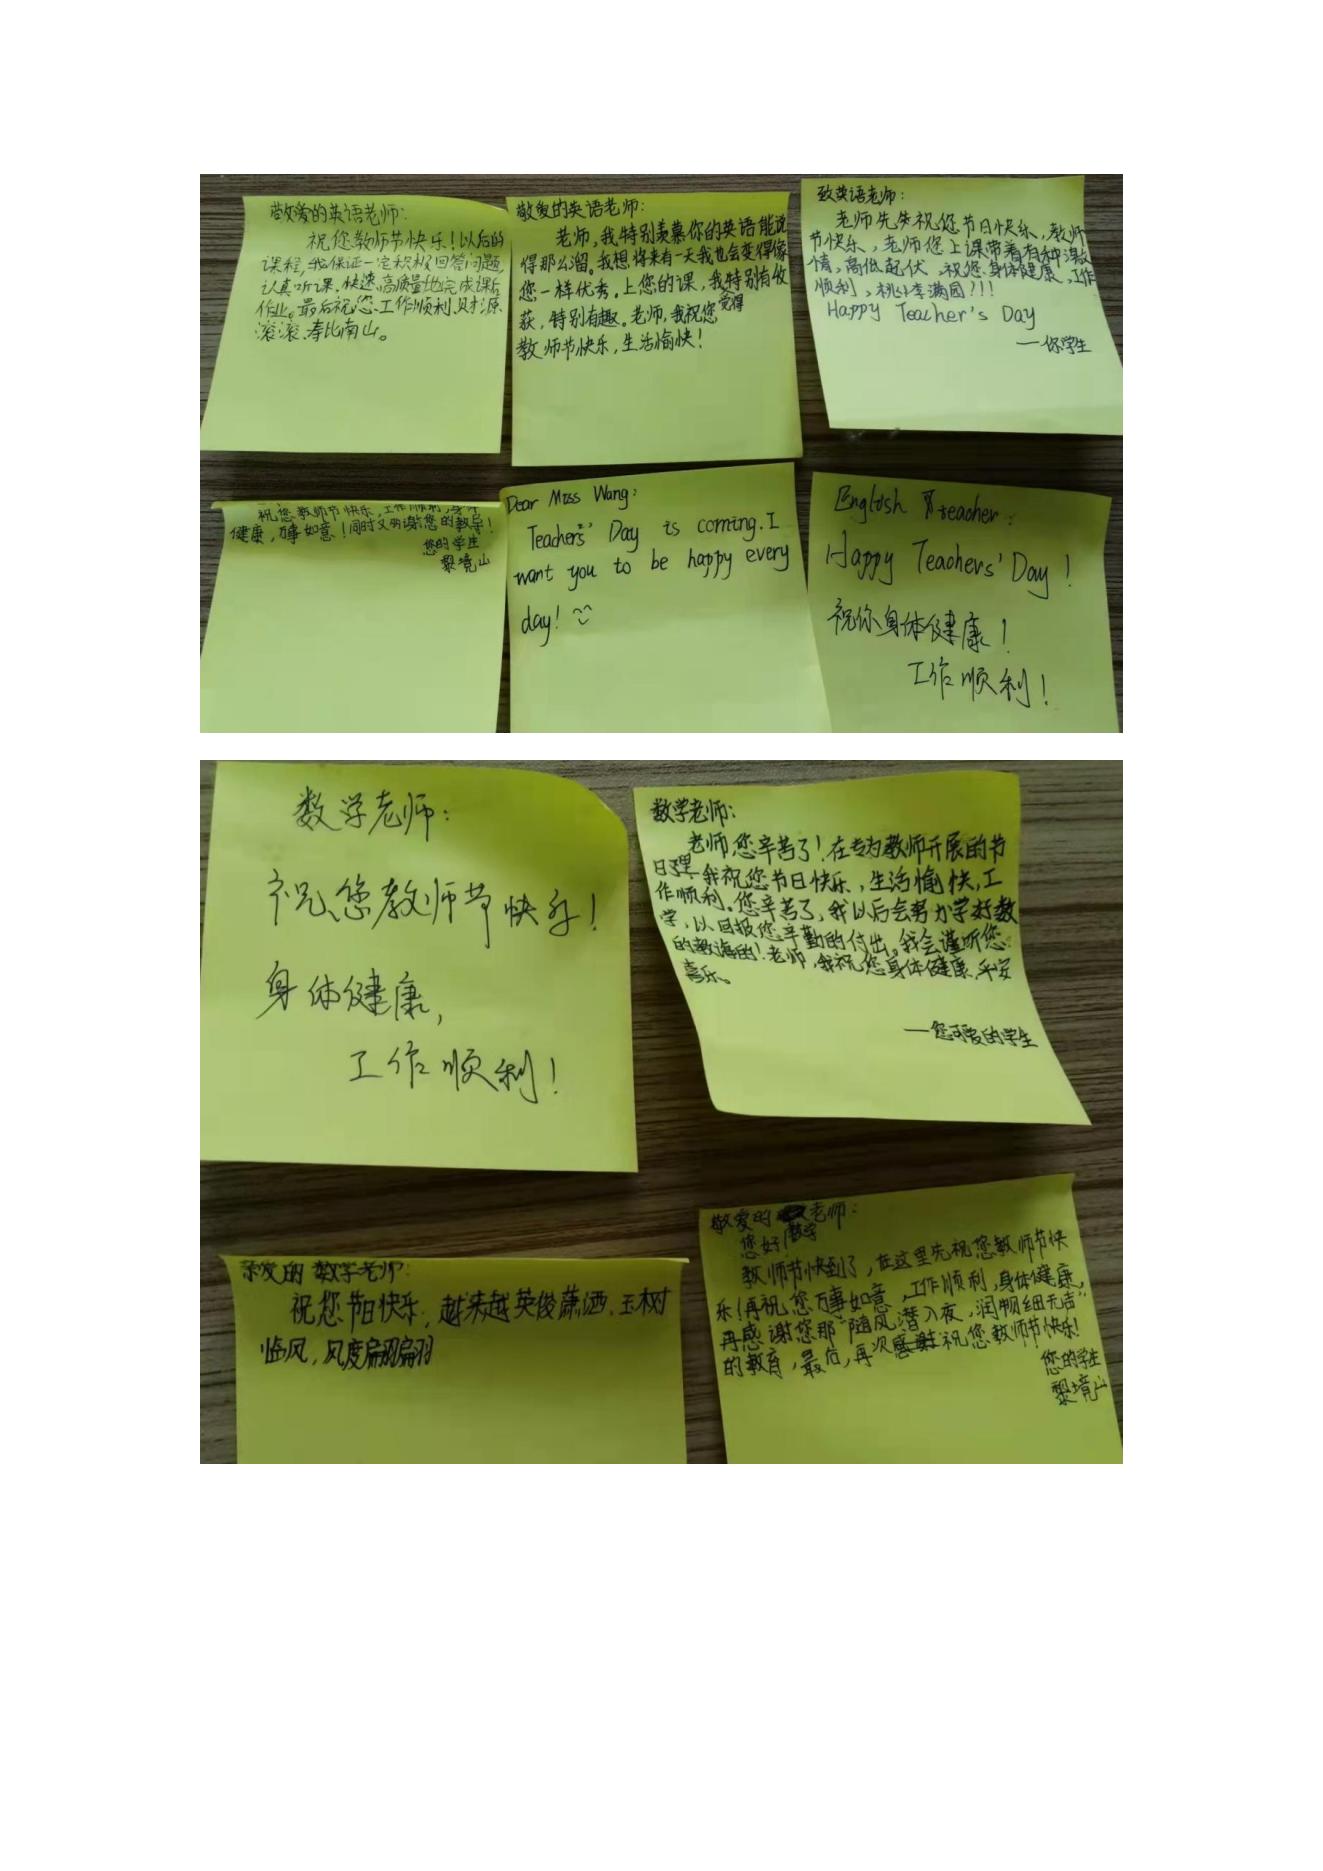 敬爱的英语老师：
祝您教师节快乐！以后的
课程，我保证一定积极回答问题，
认真听课，快速、高质量地完成课后
作业。最后祝您工作顺利，财源
滚滚，寿比南山。
敬爱的英语老师：
老师，我特别羡慕你的英语能说
得那么溜。我想将来有一天我也会变得像
您一样优秀。上您的课，我特别有收
获，特别有趣。老师，我祝您
觉得
教师节快乐，生活愉快！
致英语老师：
老师先生祝您节日快乐，教师
节快乐，老师您上课带着有种激
情，高低起伏，祝您身体健康，工作
顺利，桃李满园！！！
Happy Teacher's Day
—你学生
祝您教师节快乐，工作顺利，身体
健康，万事如意！同时又感谢您的教导！
您的学生
黎境山
Dear Miss Wang:
Teachers' Day is coming. I
want you to be happy every
day!
English teacher:
Happy Teachers' Day!
祝你身体健康！
工作顺利！
数学老师：
祝您教师节快乐！
身体健康，
工作顺利！
数学老师：
老师您辛苦了！在专为教师开展的节
日里，我祝您节日快乐，生活愉快，工
作顺利。您辛苦了，我以后会努力学好数
学，以回报您辛勤的付出，我会谨听您
的教诲的！老师，我祝您身体健康，平安
喜乐。
—您可爱的学生
亲爱的数学老师：
祝您节日快乐，越来越英俊潇洒，玉树
临风，风度翩翩
敬爱的老师：
数学
您好！
教师节快到了，在这里先祝您教师节快
乐！再祝您万事如意，工作顺利，身体健康，
再感谢您那“随风潜入夜，润物细无声”
的教育，最后，再次感谢祝您教师节快乐！
您的学生
黎境山